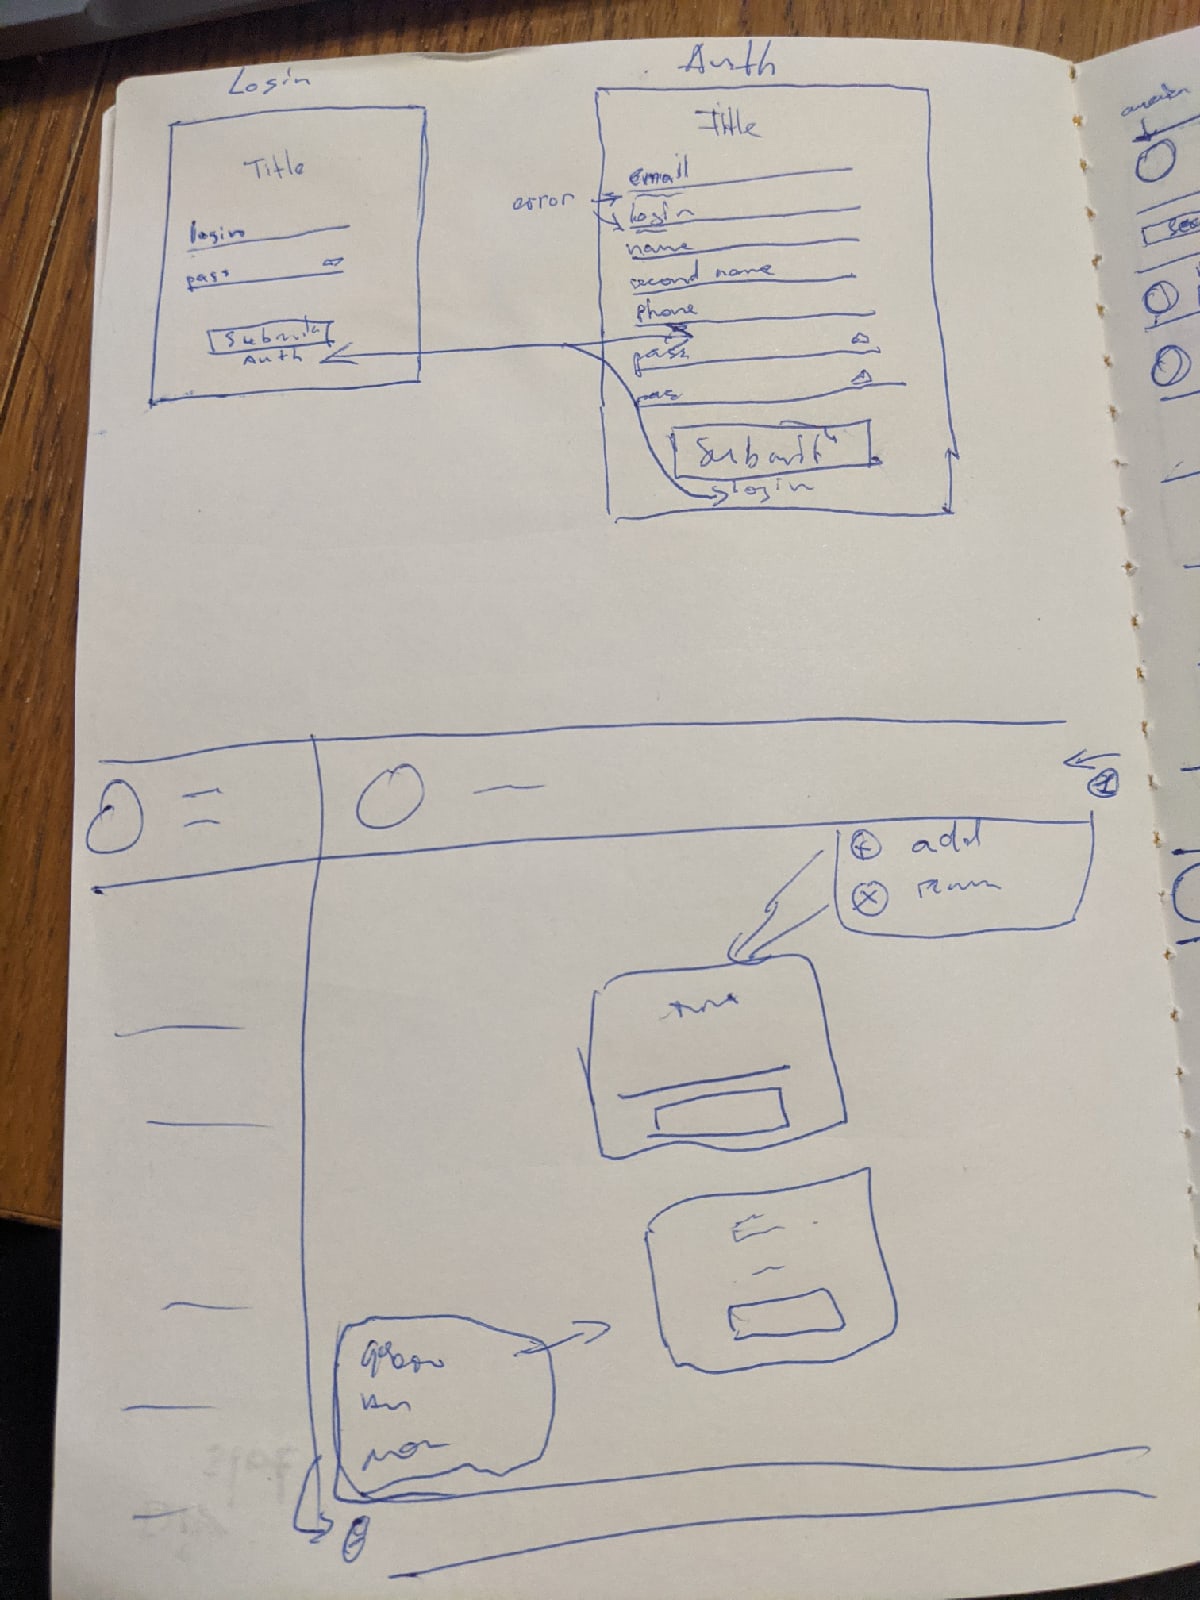 Login
Title
login
pass
Submit
Auth
Auth
Title
error
email
login
name
second name
phone
pass
pas
Submit
login
add